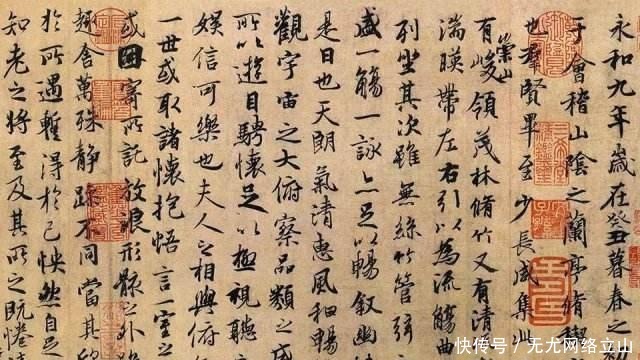 永和九年歲在癸丑暮春之
于會稽山陰之蘭亭脩禊
也羣賢畢至少長咸集此
有崇山峻領茂林脩竹又有清
湍暎帶左右引以為流觴曲
列坐其次雖無絲竹管弦
盛一觴一詠亦足以暢叙幽
是日也天朗氣清惠風和暢
觀宇宙之大俯察品類之盛
所以遊目騁懷足以極視聽
娛信可樂也夫人之相與俯
一世或取諸懷抱悟言一室之
或因寄所託放浪形骸之外
趣舍萬殊靜躁不同當其
於所遇暫得於己怏然自足
知老之將至及其所之既惓
快传号 / 无尤网络立山